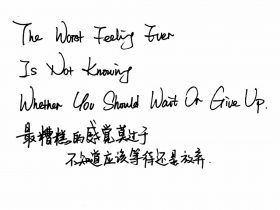 The Worst Feeling Ever
Is Not Knowing
Whether You Should Wait Or Give Up.
最糟糕的感觉莫过于
不知道应该等待还是放弃.